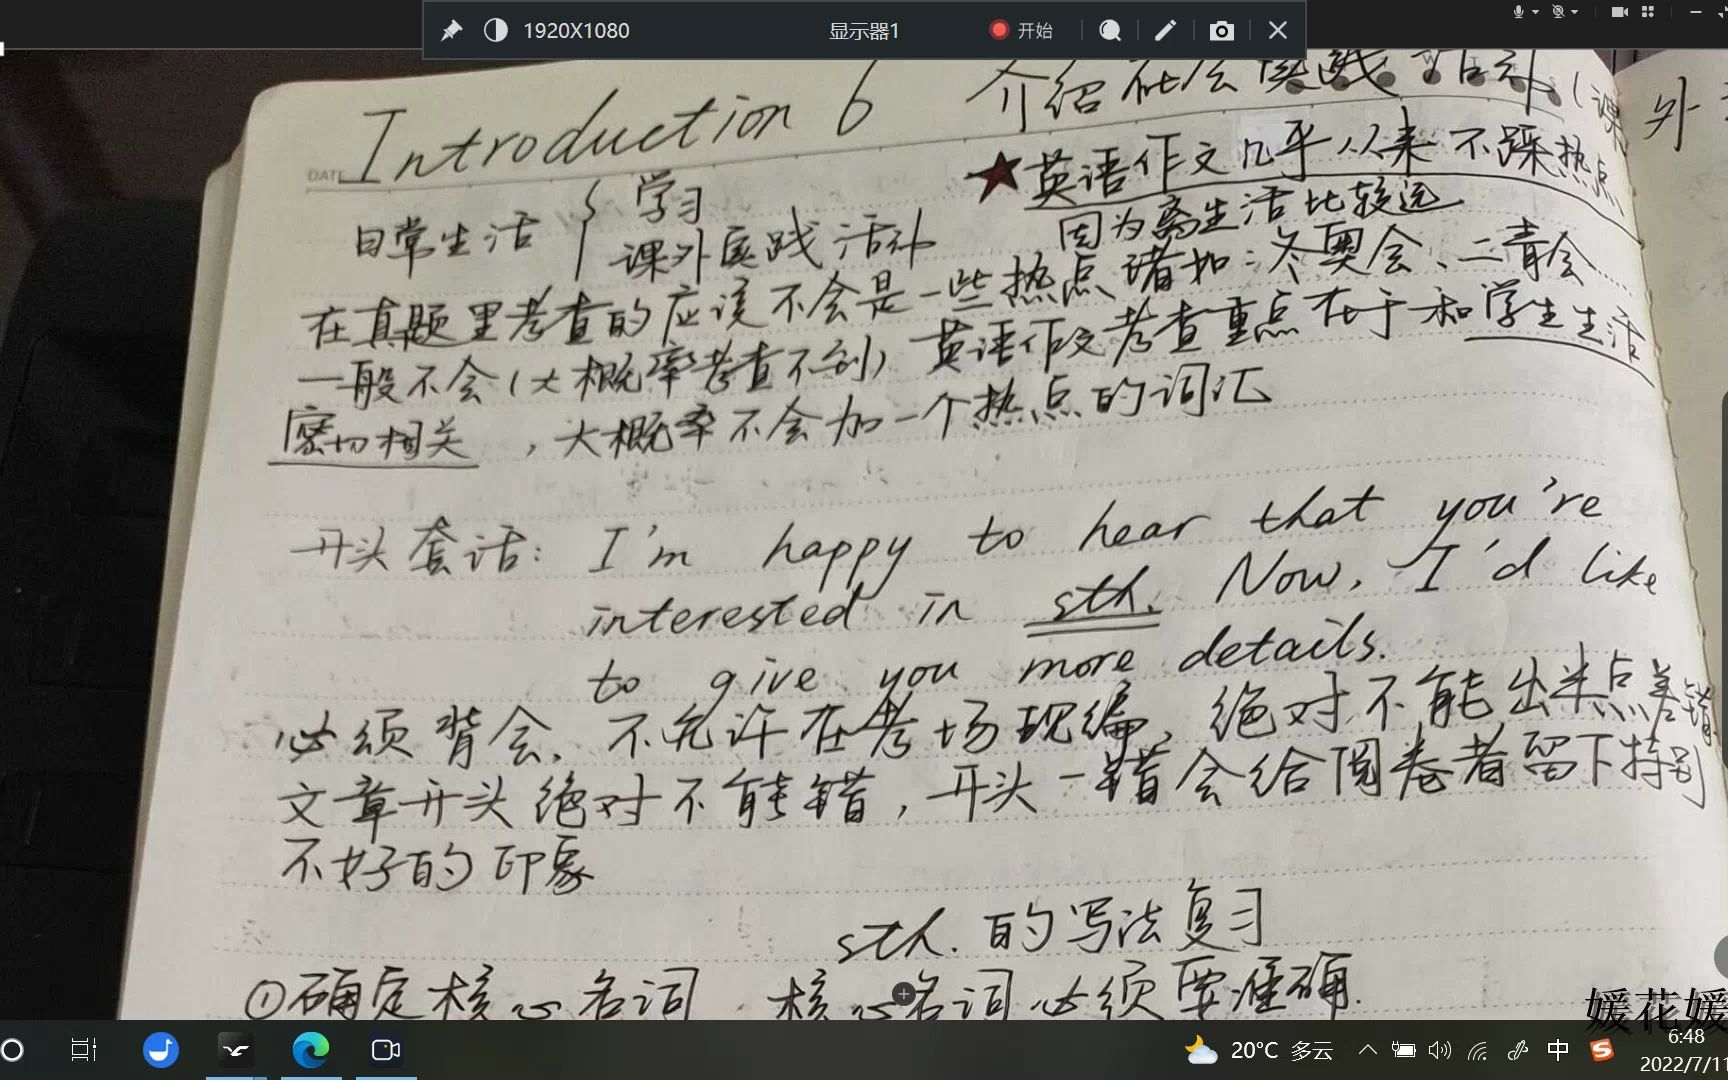 1920X1080 显示器1 开始
Introduction 6 介绍社会实践活动(课外
★英语作文几乎从来不踩热点
因为离生活比较远
日常生活 { 学习
课外实践活动
在真题里考查的应该不会是一些热点诸如:冬奥会、二青会
一般不会(大概率考查不到) 英语作文考查重点在于和学生生活
密切相关,大概率不会加一个热点的词汇
开头套话: I'm happy to hear that you're
interested in sth. Now, I'd like
to give you more details.
必须背会,不允许在考场现编,绝对不能出半点差错
文章开头绝对不能错,开头一错会给阅卷者留下特别
不好的印象
sth.的写法复习
①确定核心名词 核心名词必须要准确.
媛花媛
20°C 多云 中 6:48
2022/7/11